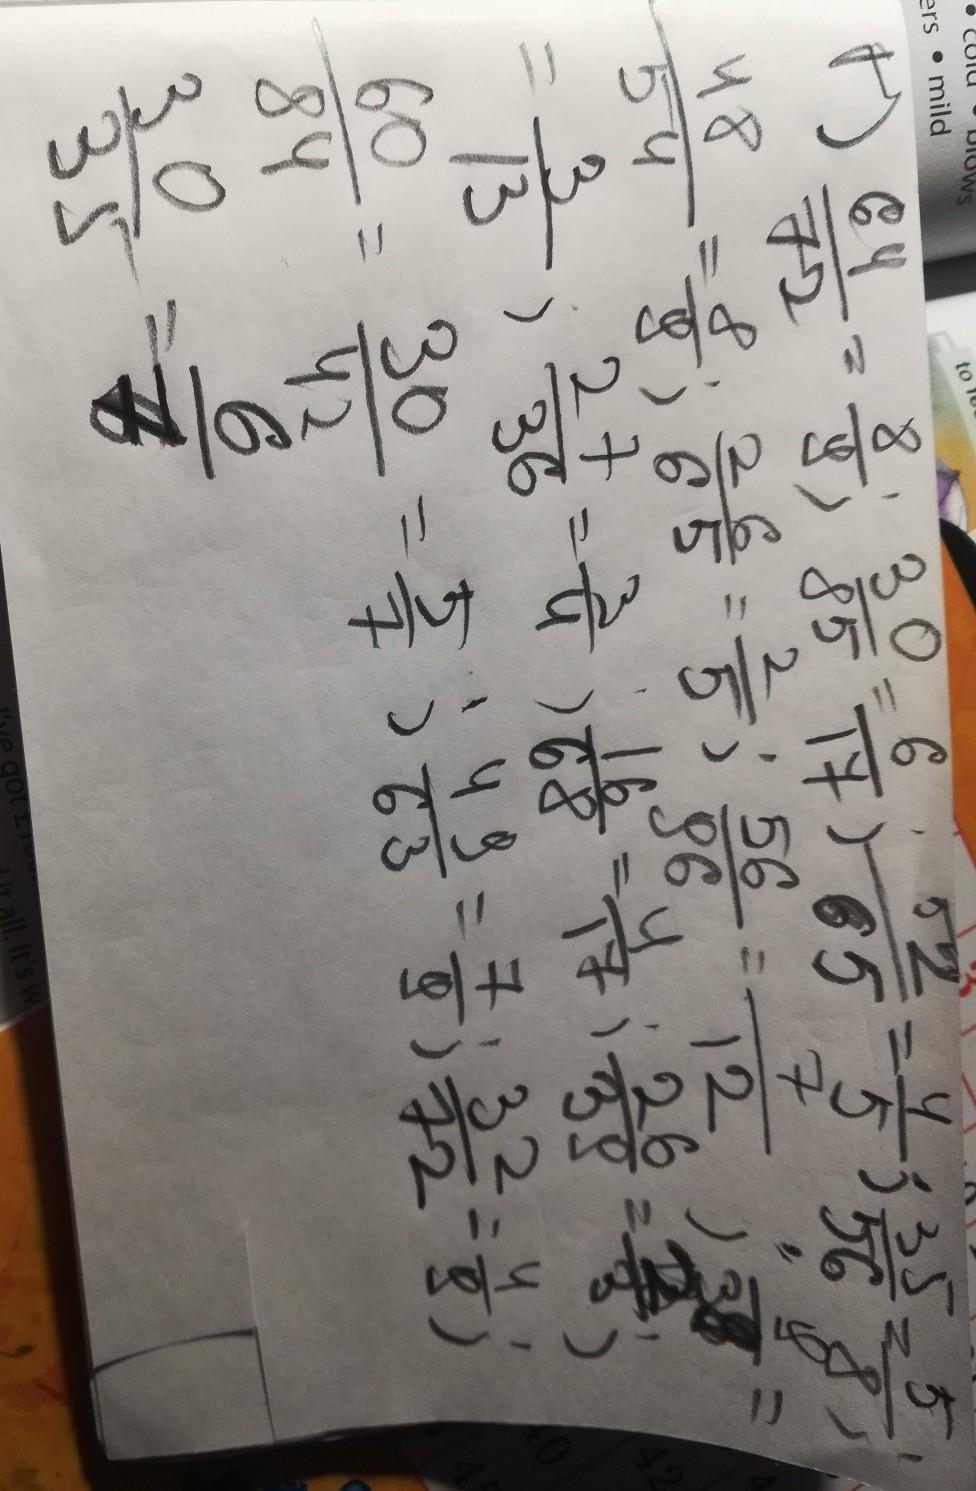 • cold • blows
ers • mild
1) 64/72 = 8/9; 30/85 = 6/17; 52/65 = 4/5; 35/56 = 5/8;
48/54 = 8/9; 26/65 = 2/5; 56/96 = 7/12; =
= 3/13; 27/36 = 3/4; 16/68 = 4/17; 26/39 = 2/3;
60/84 = 30/42 = 5/7; 49/63 = 7/9; 32/72 = 4/9;
30/35 = 6/7
I've got it all. It's w
40 42
45